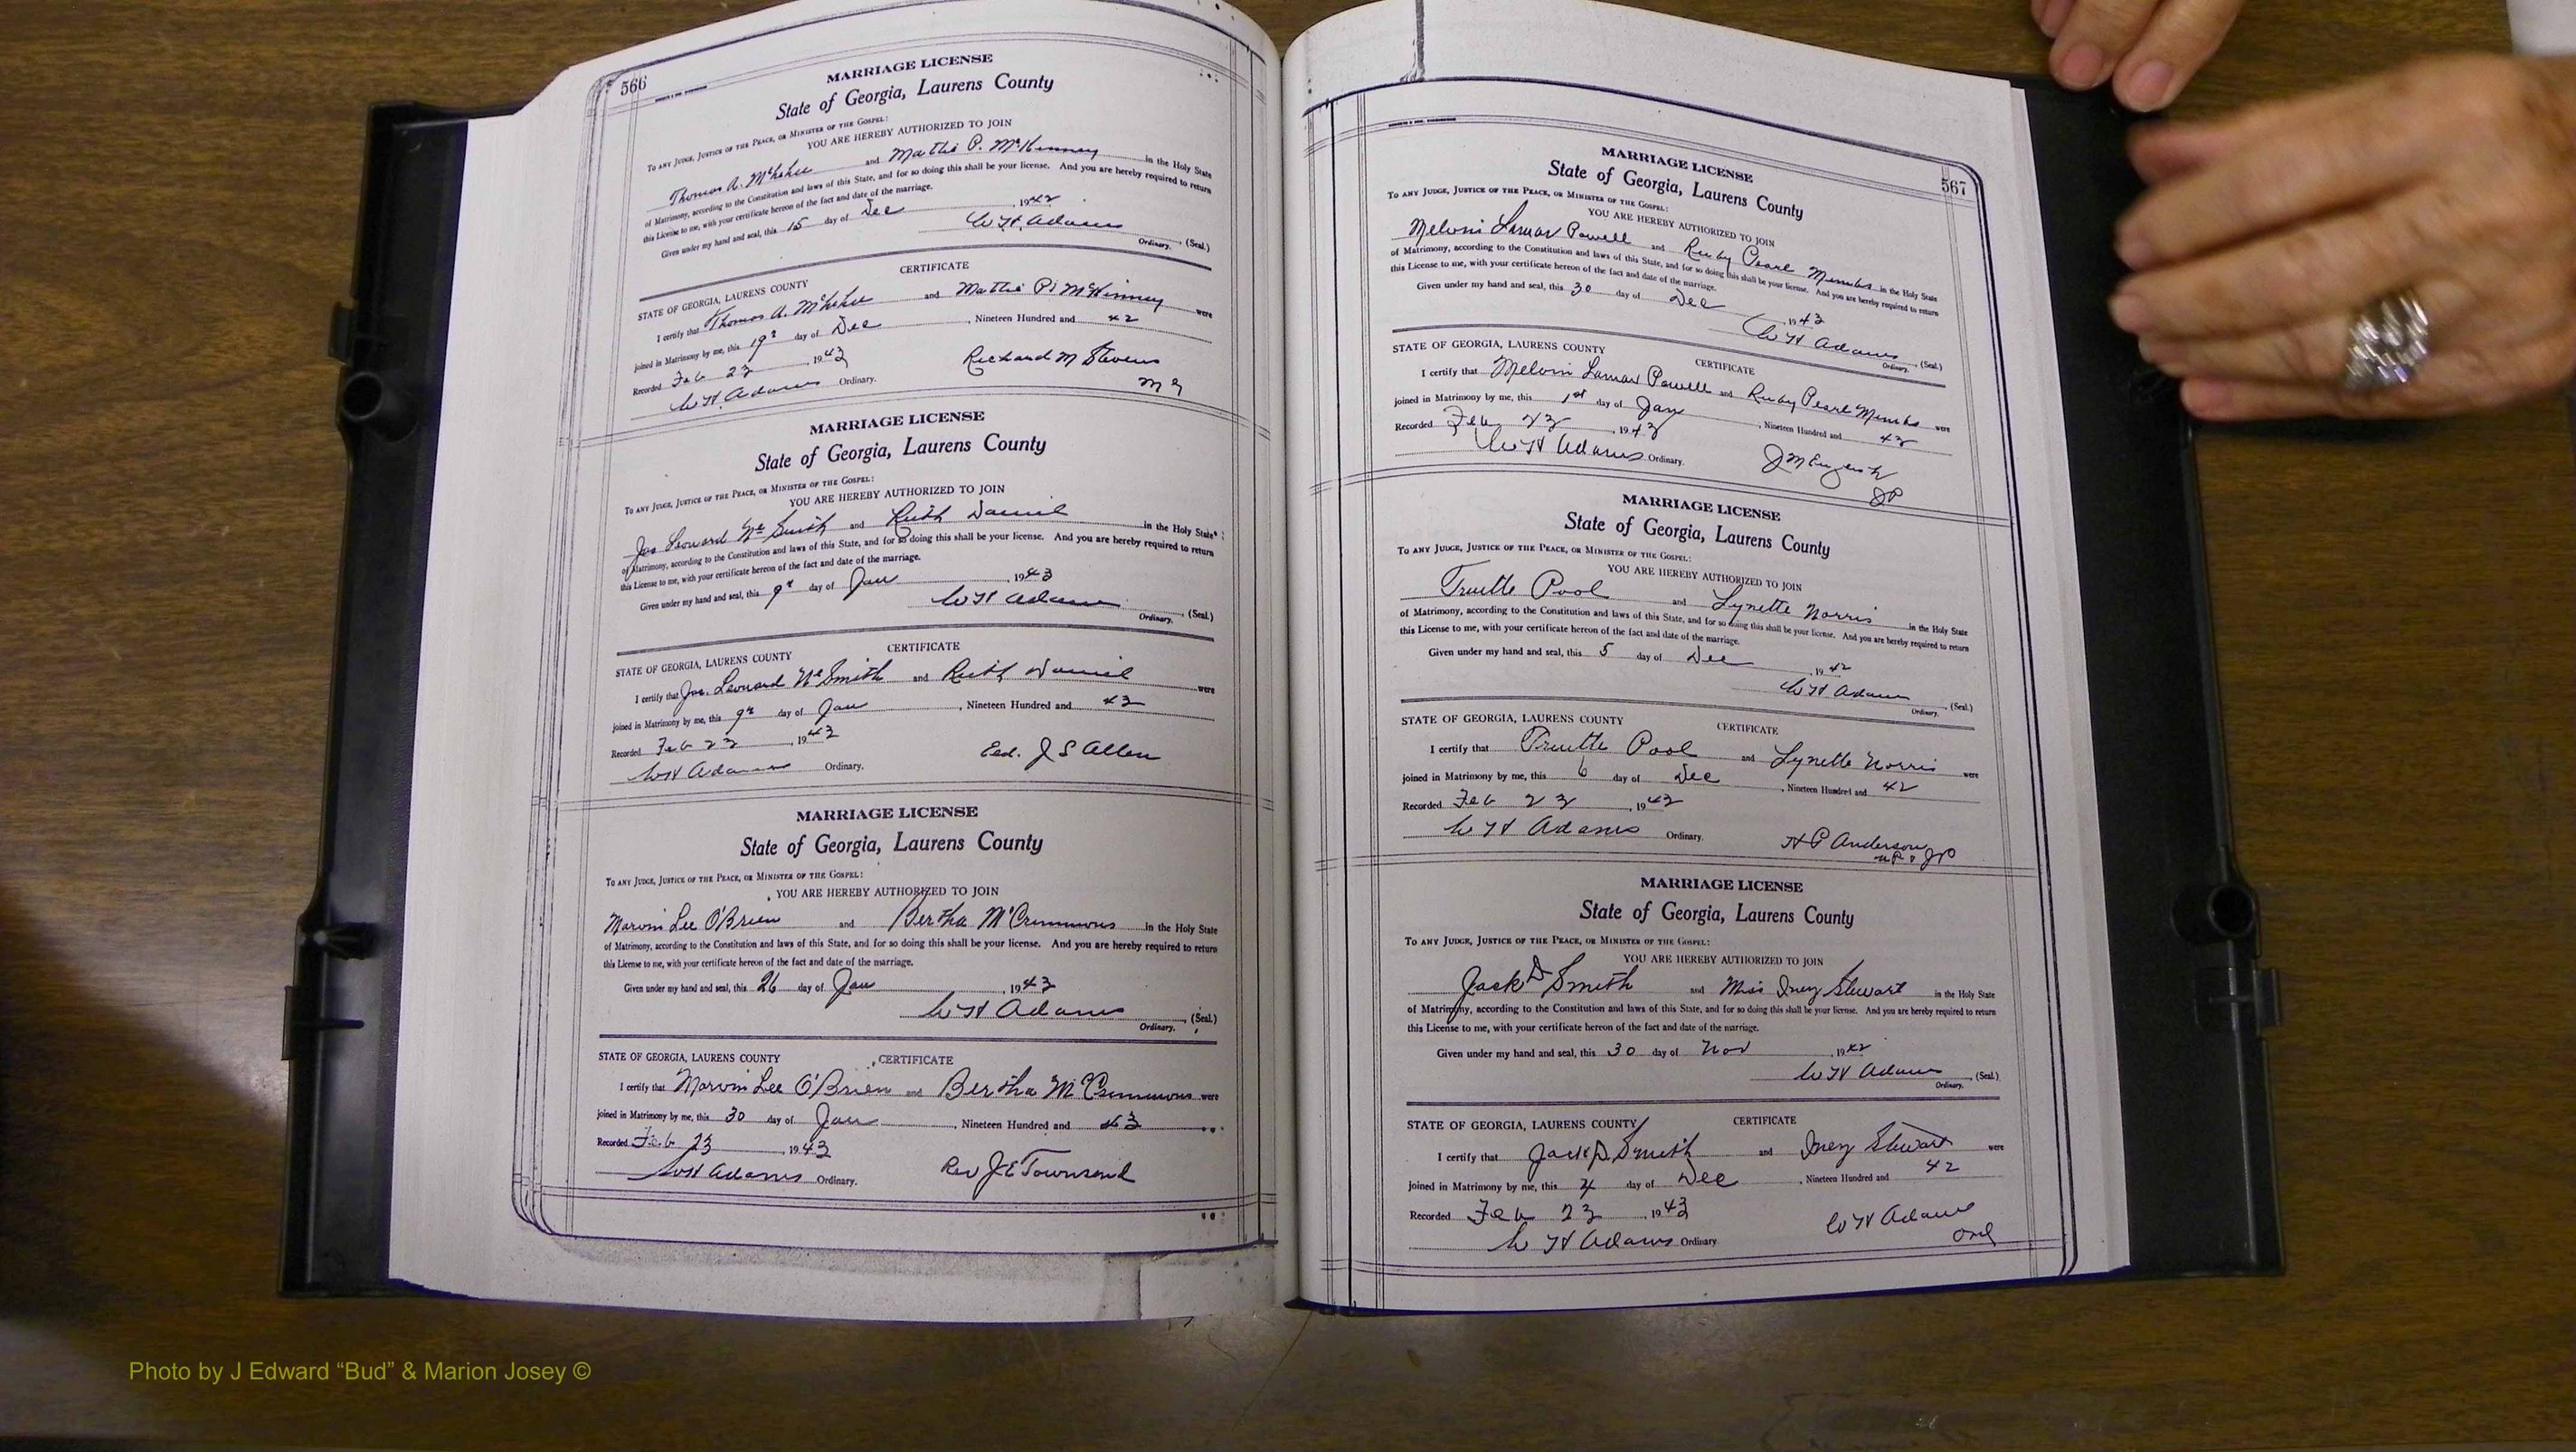 566
MARRIAGE LICENSE
State of Georgia, Laurens County
To any Judge, Justice of the Peace, or Minister of the Gospel:
YOU ARE HEREBY AUTHORIZED TO JOIN
Thomas A. McGehee and Mattie P. McKinney in the Holy State
of Matrimony, according to the Constitution and laws of this State, and for so doing this shall be your license. And you are hereby required to return
this License to me, with your certificate hereon of the fact and date of the marriage.
Given under my hand and seal, this 15 day of Dec, 1942
W H Adams (Seal.)
Ordinary.
CERTIFICATE
STATE OF GEORGIA, LAURENS COUNTY
I certify that Thomas A. McGehee and Mattie P. McKinney were
joined in Matrimony by me, this 19 day of Dec, Nineteen Hundred and 42
Recorded Feb 23, 1943
W H Adams Ordinary.
Richard M Stevens
M G
MARRIAGE LICENSE
State of Georgia, Laurens County
To any Judge, Justice of the Peace, or Minister of the Gospel:
YOU ARE HEREBY AUTHORIZED TO JOIN
Jas Leonard Smith and Ruth Daniel in the Holy State
of Matrimony, according to the Constitution and laws of this State, and for so doing this shall be your license. And you are hereby required to return
this License to me, with your certificate hereon of the fact and date of the marriage.
Given under my hand and seal, this 9 day of Jan, 1943
W H Adams (Seal.)
Ordinary.
CERTIFICATE
STATE OF GEORGIA, LAURENS COUNTY
I certify that Jas. Leonard Smith and Ruth Daniel were
joined in Matrimony by me, this 9 day of Jan, Nineteen Hundred and 43
Recorded Feb 23, 1943
W H Adams Ordinary.
Eld. J S Allen
MARRIAGE LICENSE
State of Georgia, Laurens County
To any Judge, Justice of the Peace, or Minister of the Gospel:
YOU ARE HEREBY AUTHORIZED TO JOIN
Marvin Lee O'Brien and Bertha McCrimmons in the Holy State
of Matrimony, according to the Constitution and laws of this State, and for so doing this shall be your license. And you are hereby required to return
this License to me, with your certificate hereon of the fact and date of the marriage.
Given under my hand and seal, this 26 day of Jan, 1943
W H Adams (Seal.)
Ordinary.
STATE OF GEORGIA, LAURENS COUNTY CERTIFICATE
I certify that Marvin Lee O'Brien and Bertha McCrimmons were
joined in Matrimony by me, this 30 day of Jan, Nineteen Hundred and 43
Recorded Feb 23, 1943
W H Adams Ordinary.
Rev J E Townsend
567
MARRIAGE LICENSE
State of Georgia, Laurens County
To any Judge, Justice of the Peace, or Minister of the Gospel:
YOU ARE HEREBY AUTHORIZED TO JOIN
Melvin Lamar Powell and Ruby Pearl Mimbs in the Holy State
of Matrimony, according to the Constitution and laws of this State, and for so doing this shall be your license. And you are hereby required to return
this License to me, with your certificate hereon of the fact and date of the marriage.
Given under my hand and seal, this 30 day of Dec, 1943
W H Adams (Seal.)
Ordinary.
STATE OF GEORGIA, LAURENS COUNTY CERTIFICATE
I certify that Melvin Lamar Powell and Ruby Pearl Mimbs were
joined in Matrimony by me, this 1st day of Jan, Nineteen Hundred and
Recorded Feb 23, 1943
W H Adams Ordinary.
J M English
JP
MARRIAGE LICENSE
State of Georgia, Laurens County
To any Judge, Justice of the Peace, or Minister of the Gospel:
YOU ARE HEREBY AUTHORIZED TO JOIN
Truette Pool and Lynette Norris in the Holy State
of Matrimony, according to the Constitution and laws of this State, and for so doing this shall be your license. And you are hereby required to return
this License to me, with your certificate hereon of the fact and date of the marriage.
Given under my hand and seal, this 5 day of Dec, 1942
W H Adams (Seal.)
Ordinary.
STATE OF GEORGIA, LAURENS COUNTY CERTIFICATE
I certify that Truette Pool and Lynette Norris were
joined in Matrimony by me, this 6 day of Dec, Nineteen Hundred and 42
Recorded Feb 23, 1943
W H Adams Ordinary.
H P Anderson
NP & JP
MARRIAGE LICENSE
State of Georgia, Laurens County
To any Judge, Justice of the Peace, or Minister of the Gospel:
YOU ARE HEREBY AUTHORIZED TO JOIN
Jack D Smith and Miss Inez Stewart in the Holy State
of Matrimony, according to the Constitution and laws of this State, and for so doing this shall be your license. And you are hereby required to return
this License to me, with your certificate hereon of the fact and date of the marriage.
Given under my hand and seal, this 30 day of Nov, 1942
W H Adams (Seal.)
Ordinary.
STATE OF GEORGIA, LAURENS COUNTY CERTIFICATE
I certify that Jack D. Smith and Inez Stewart were
joined in Matrimony by me, this day of Dec, Nineteen Hundred and 42
Recorded Feb 23, 1943
W H Adams Ordinary
W H Adams
Ord
Photo by J Edward “Bud” & Marion Josey ©